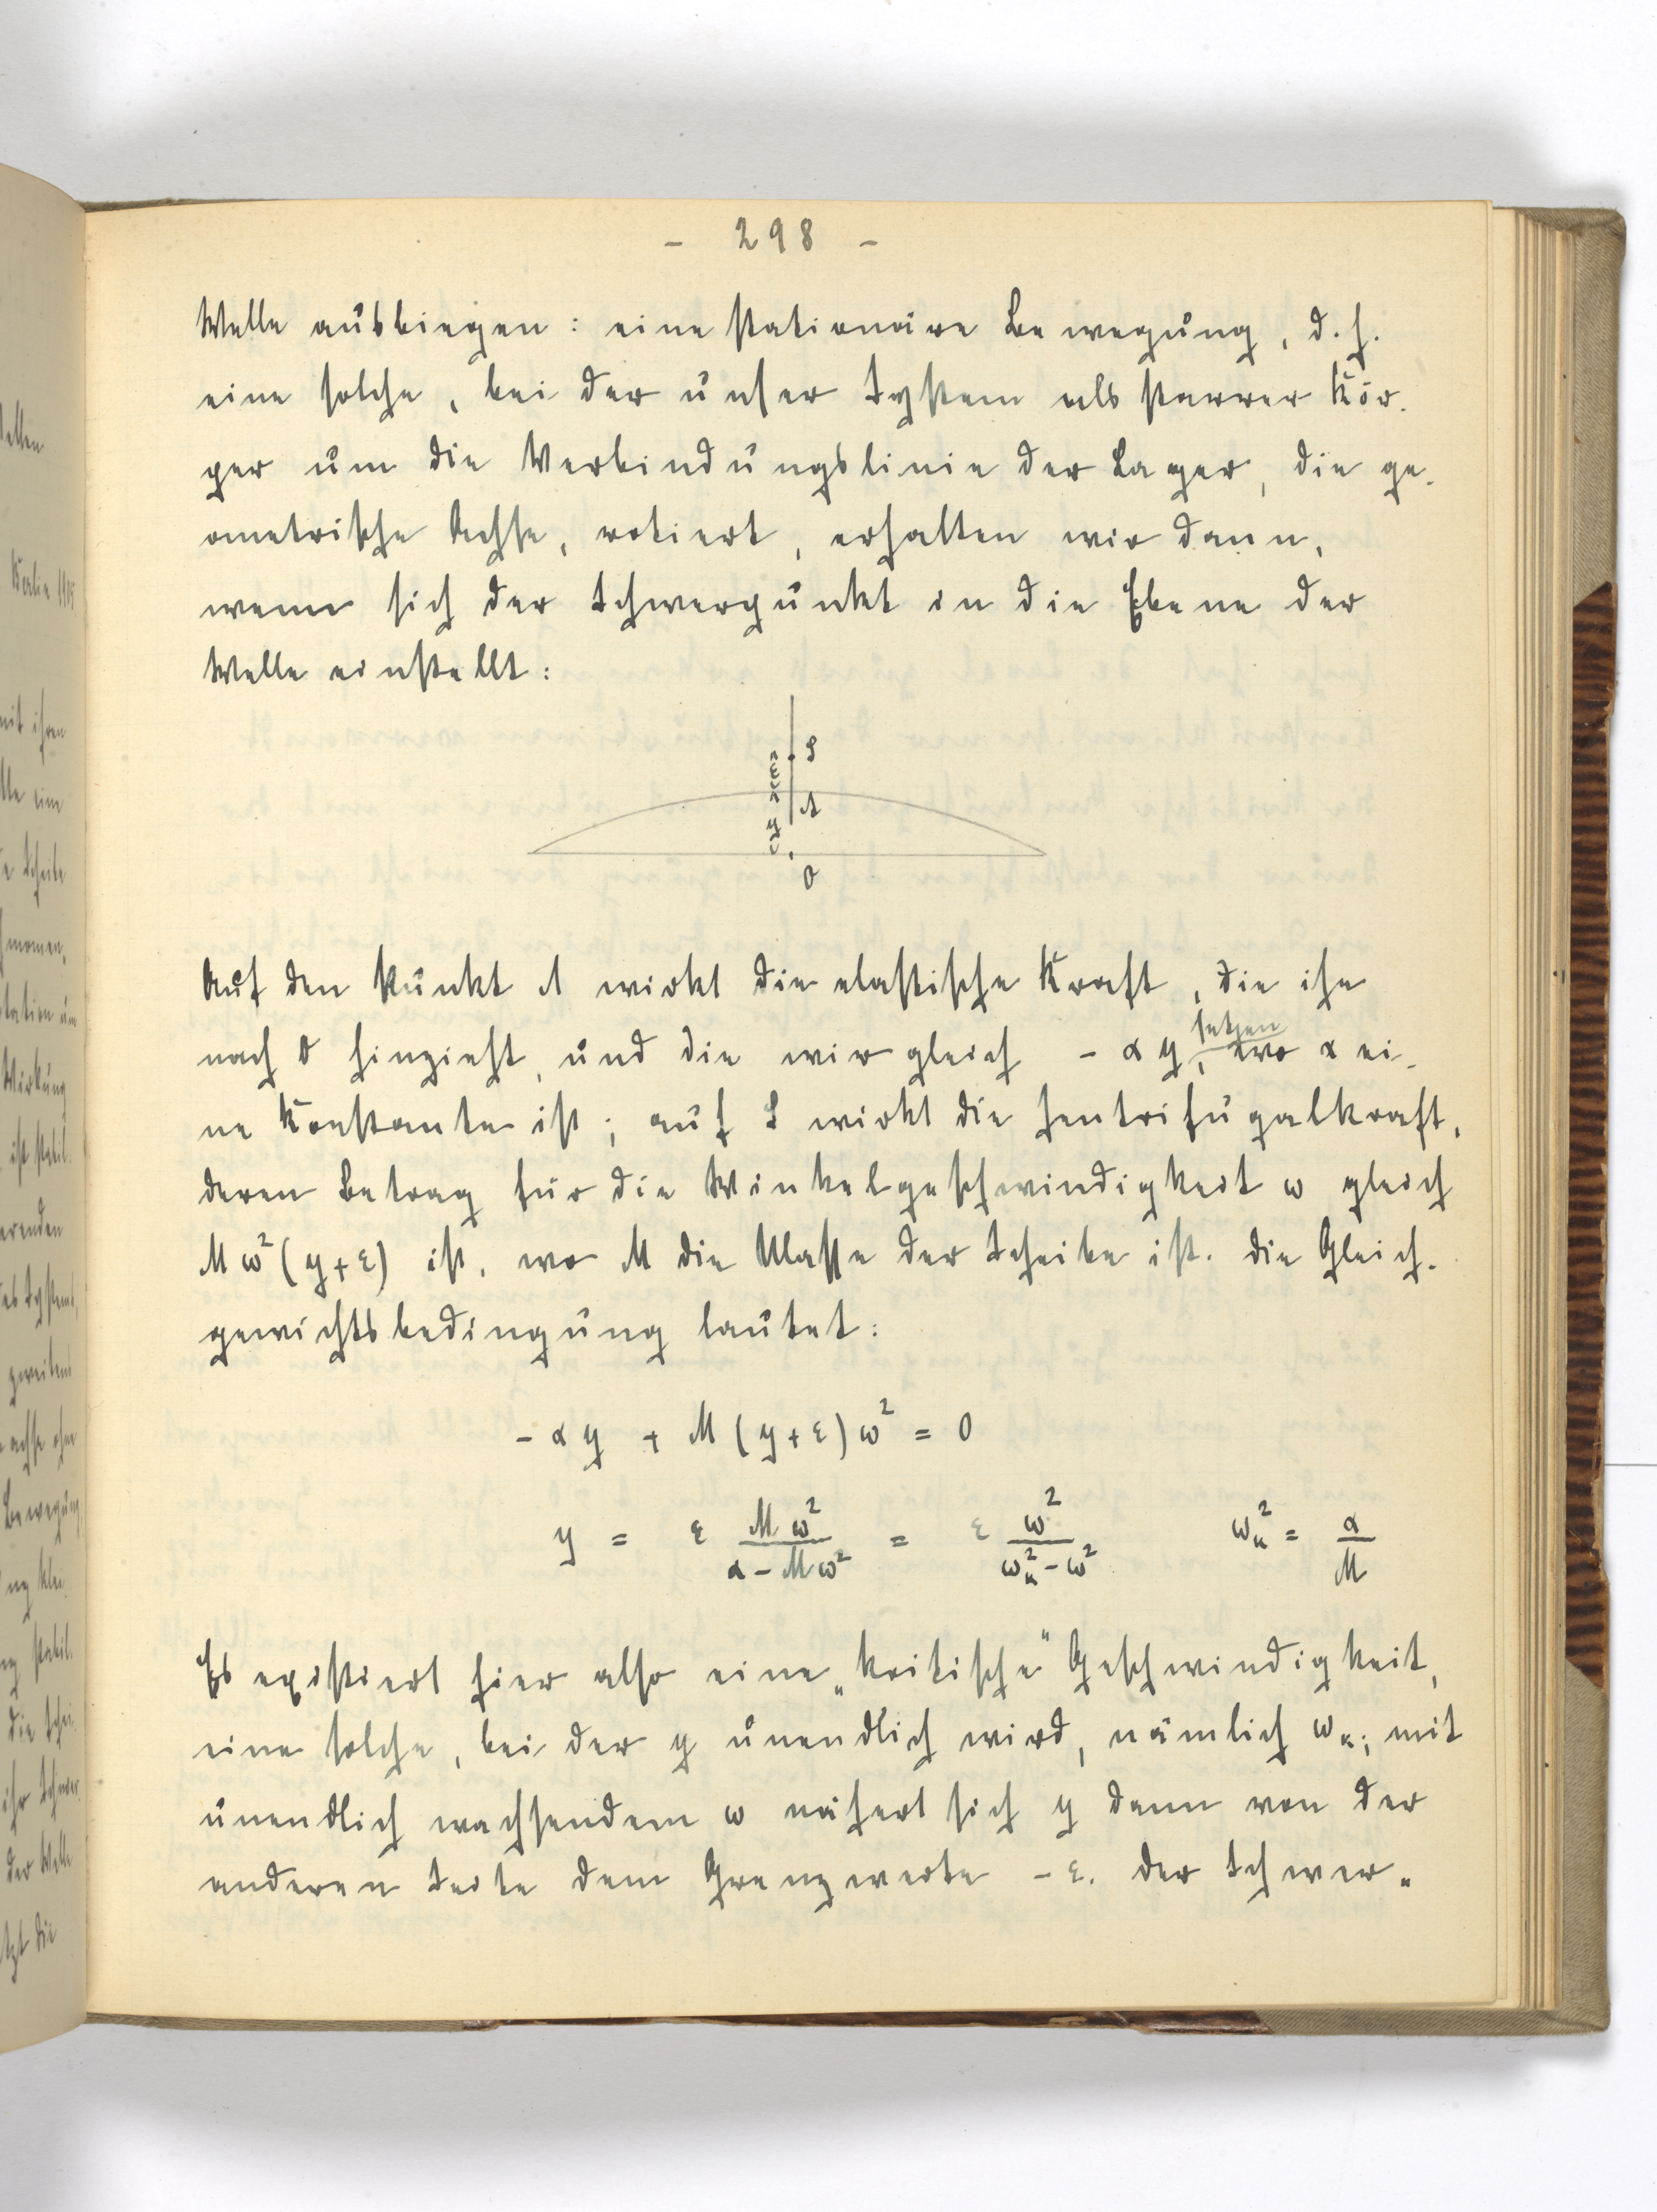 - 298 -
Welle ausbiegen: eine stationäre Bewegung, d.h.
eine solche, bei der unser System als starrer Kör-
per um die Verbindungslinie der Lager, die ge-
ometrische Achse, rotiert, erhalten wir dann,
wenn sich der Schwerpunkt in die Ebene der
Welle einstellt:
S
ε
A
y
O
Auf den Punkt A wirkt die elastische Kraft, die ihn
nach O hinzieht, und die wir gleich - αy setzen, wo α ei-
ne Konstante ist; auf S wirkt die Zentrifugalkraft,
deren Betrag für die Winkelgeschwindigkeit ω gleich
Mω²(y+ε) ist, wo M die Masse der Scheibe ist. Die Gleich-
gewichtsbedingung lautet:
- αy + M(y+ε)ω² = 0
y = ε Mω² / (α - Mω²) = ε ω² / (ωₖ² - ω²) ωₖ² = α / M
Es existiert hier also eine „kritische“ Geschwindigkeit,
eine solche, bei der y unendlich wird, nämlich ωₖ; mit
unendlich wachsendem ω nähert sich y dann von der
anderen Seite dem Grenzwerte - ε. Der Schwer-